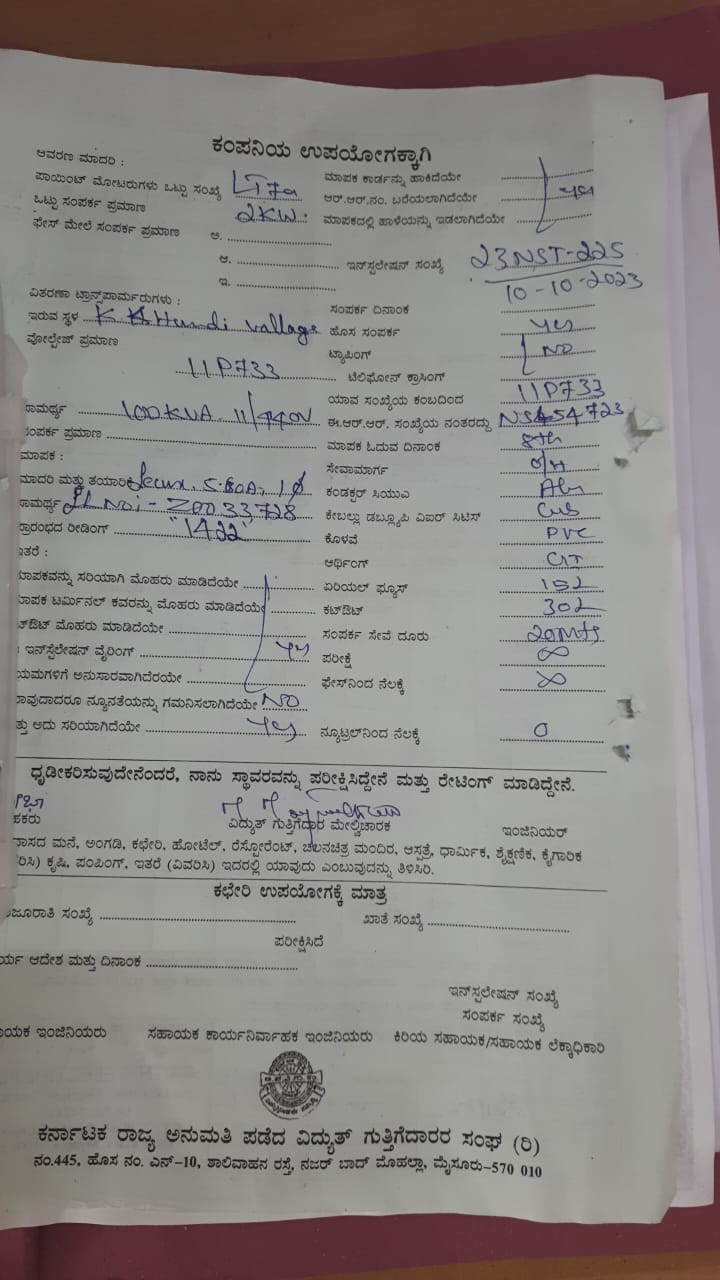 ಕಂಪನಿಯ ಉಪಯೋಗಕ್ಕಾಗಿ
ಆವರಣ ಮಾದರಿ :
ಮಾಪಕ ಕಾರ್ಡನ್ನು ಹಾಕಿದೆಯೇ
ಪಾಯಿಂಟ್ ಮೋಟರುಗಳು ಒಟ್ಟು ಸಂಖ್ಯೆ LT7a ಆರ್.ಆರ್.ನಂ. ಬರೆಯಲಾಗಿದೆಯೇ yes
ಒಟ್ಟು ಸಂಪರ್ಕ ಪ್ರಮಾಣ 2KW. ಮಾಪಕದಲ್ಲಿ ಹಾಳೆಯನ್ನು ಇಡಲಾಗಿದೆಯೇ
ಫೇಸ್ ಮೇಲೆ ಸಂಪರ್ಕ ಪ್ರಮಾಣ ಅ.
ಆ. ಇನ್‌ಸ್ಟಲೇಷನ್ ಸಂಖ್ಯೆ 23NST-225
ಇ. 10-10-2023
ವಿತರಣಾ ಟ್ರಾನ್ಸ್‌ಪಾರ್ಮರುಗಳು : ಸಂಪರ್ಕ ದಿನಾಂಕ
ಇರುವ ಸ್ಥಳ K Hundi vallage ಹೊಸ ಸಂಪರ್ಕ yes
ವೋಲ್ಟೇಜ್ ಪ್ರಮಾಣ ಟ್ಯಾಪಿಂಗ್ NO
11P733 ಟೆಲಿಫೋನ್ ಕ್ರಾಸಿಂಗ್
ಯಾವ ಸಂಖ್ಯೆಯ ಕಂಬದಿಂದ 11P733
ಸಾಮರ್ಥ್ಯ 100KVA 11/440V ಈ.ಆರ್.ಆರ್. ಸಂಖ್ಯೆಯ ನಂತರದ್ದು NS454723
ಸಂಪರ್ಕ ಪ್ರಮಾಣ ಮಾಪಕ ಓದುವ ದಿನಾಂಕ 8th
ಮಾಪಕ : ಸೇವಾಮಾರ್ಗ O/H
ಮಾದರಿ ಮತ್ತು ತಯಾರಿಕೆ 1ϕ ಕಂಡಕ್ಟರ್ ಸಿಯುಎ
ಸಾಮರ್ಥ್ಯ Sl No:- Z0033728 ಕೇಬಲ್ಲು ಡಬ್ಲ್ಯೂಪಿ ವಿಐರ್ ಸಿಟಿಸ್
ಪ್ರಾರಂಭದ ರೀಡಿಂಗ್ "1422" ಕೊಳವೆ PVC
ಇತರೆ : ಆರ್ಥಿಂಗ್ GI
ಮಾಪಕವನ್ನು ಸರಿಯಾಗಿ ಮೊಹರು ಮಾಡಿದೆಯೇ ಏರಿಯಲ್ ಫ್ಯೂಸ್ 15L
ಮಾಪಕ ಟರ್ಮಿನಲ್ ಕವರನ್ನು ಮೊಹರು ಮಾಡಿದೆಯೇ ಕಟ್‌ಔಟ್ 30L
ಕಟ್‌ಔಟ್ ಮೊಹರು ಮಾಡಿದೆಯೇ ಸಂಪರ್ಕ ಸೇವೆ ದೂರು 20Mts
ಇನ್‌ಸ್ಟೆಲೇಷನ್ ವೈರಿಂಗ್ yes ಪರೀಕ್ಷೆ ∞
ನಿಯಮಗಳಿಗೆ ಅನುಸಾರವಾಗಿದೆರಯೇ ಫೇಸ್‌ನಿಂದ ನೆಲಕ್ಕೆ ∞
ಯಾವುದಾದರೂ ನ್ಯೂನತೆಯನ್ನು ಗಮನಿಸಲಾಗಿದೆಯೇ NO
ಮತ್ತು ಅದು ಸರಿಯಾಗಿದೆಯೇ yes ನ್ಯೂಟ್ರಲ್‌ನಿಂದ ನೆಲಕ್ಕೆ 0
ಧೃಡೀಕರಿಸುವುದೇನೆಂದರೆ, ನಾನು ಸ್ಥಾವರವನ್ನು ಪರೀಕ್ಷಿಸಿದ್ದೇನೆ ಮತ್ತು ರೇಟಿಂಗ್ ಮಾಡಿದ್ದೇನೆ.
ವಿದ್ಯುತ್ ಗುತ್ತಿಗೆದಾರ ಮೇಲ್ವಿಚಾರಕ ಇಂಜಿನಿಯರ್
ವಾಸದ ಮನೆ, ಅಂಗಡಿ, ಕಛೇರಿ, ಹೋಟೆಲ್, ರೆಸ್ಟೋರೆಂಟ್, ಚಲನಚಿತ್ರ ಮಂದಿರ, ಆಸ್ಪತ್ರೆ, ಧಾರ್ಮಿಕ, ಶೈಕ್ಷಣಿಕ, ಕೈಗಾರಿಕ
ಕೃಷಿ, ಪಂಪಿಂಗ್, ಇತರೆ (ವಿವರಿಸಿ) ಇದರಲ್ಲಿ ಯಾವುದು ಎಂಬುವುದನ್ನು ತಿಳಿಸಿರಿ.
ಕಛೇರಿ ಉಪಯೋಗಕ್ಕೆ ಮಾತ್ರ
ಮಂಜೂರಾತಿ ಸಂಖ್ಯೆ ಖಾತೆ ಸಂಖ್ಯೆ
ಪರೀಕ್ಷಿಸಿದೆ
ಕಾರ್ಯ ಆದೇಶ ಮತ್ತು ದಿನಾಂಕ
ಇನ್‌ಸ್ಟಲೇಷನ್ ಸಂಖ್ಯೆ
ಸಂಪರ್ಕ ಸಂಖ್ಯೆ
ಸಹಾಯಕ ಇಂಜಿನಿಯರು ಸಹಾಯಕ ಕಾರ್ಯನಿರ್ವಾಹಕ ಇಂಜಿನಿಯರು ಕಿರಿಯ ಸಹಾಯಕ/ಸಹಾಯಕ ಲೆಕ್ಕಾಧಿಕಾರಿ
ಕರ್ನಾಟಕ ರಾಜ್ಯ ಅನುಮತಿ ಪಡೆದ ವಿದ್ಯುತ್ ಗುತ್ತಿಗೆದಾರರ ಸಂಘ (ರಿ)
ನಂ.445, ಹೊಸ ನಂ. ಎನ್-10, ಶಾಲಿವಾಹನ ರಸ್ತೆ, ನಜರ್ ಬಾದ್ ಮೊಹಲ್ಲಾ, ಮೈಸೂರು-570 010